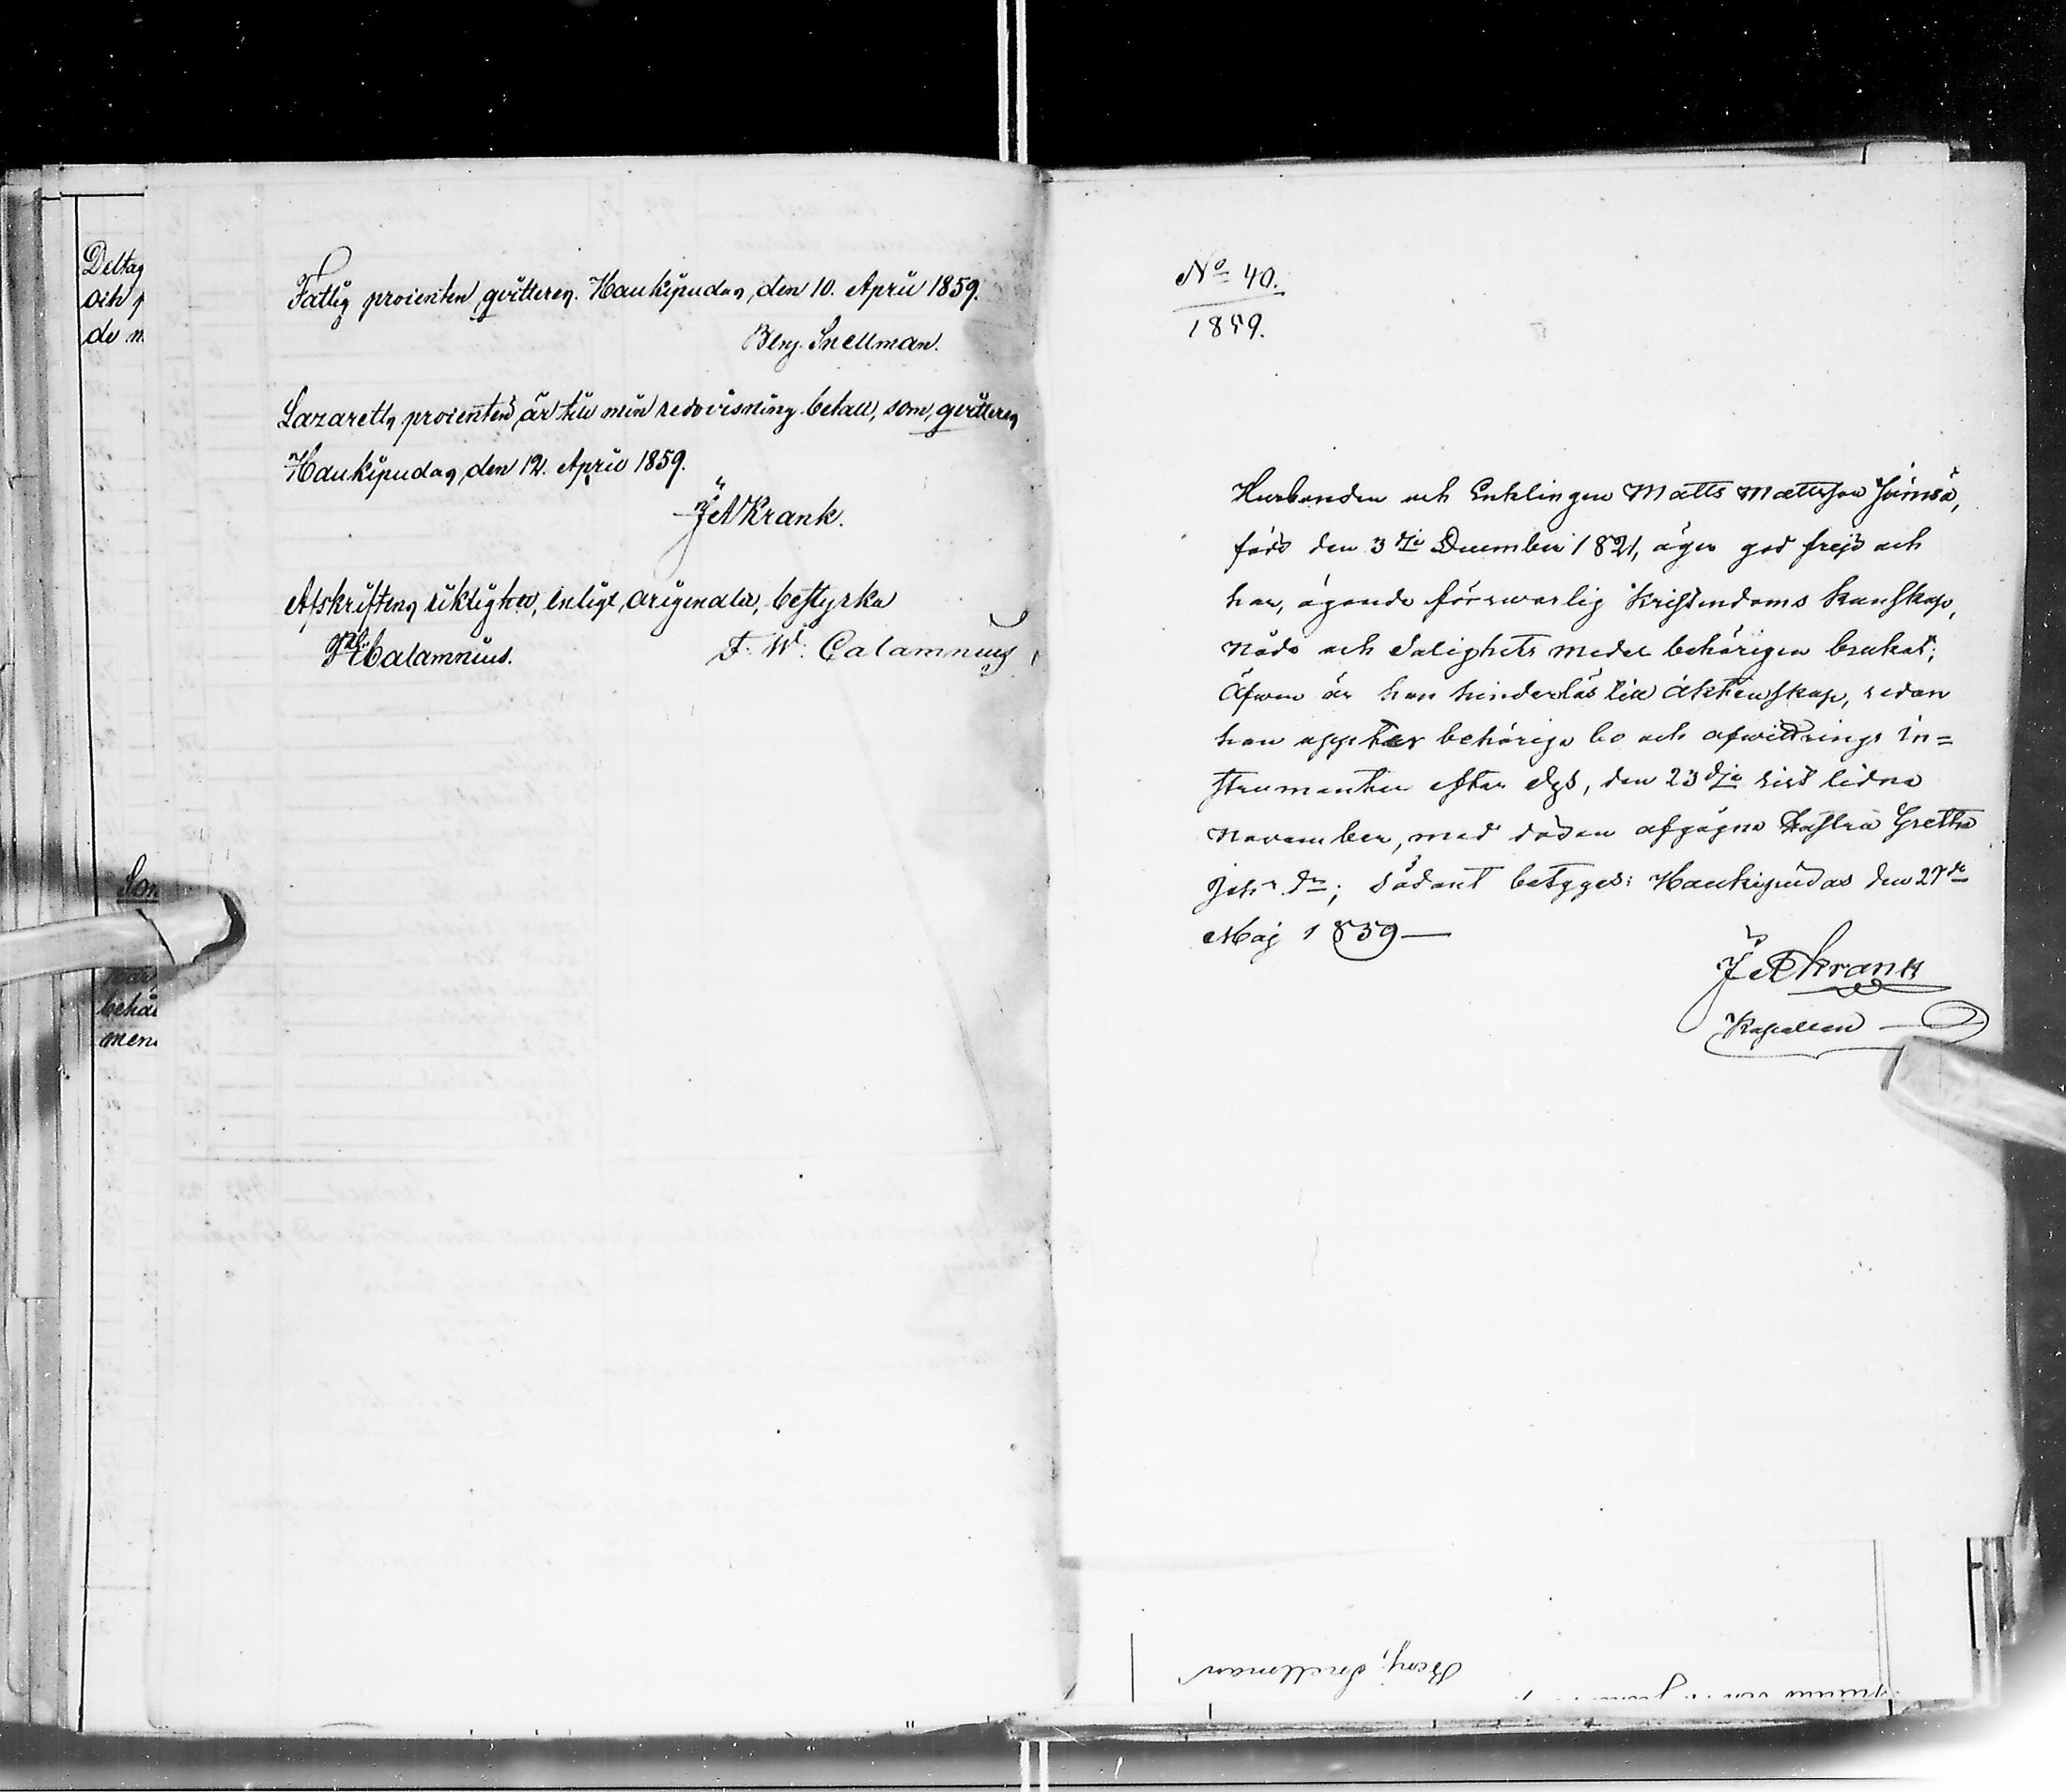 Deltag
och p
de m
Fattig procenten qvitteras. Haukipudas, den 10. April 1859.
Benj. Snellman.
Lazaretts procenten är till min redovisning betalt, som qvitteras
Haukipudas den 12. April 1859.
J A Krank.
Afskriftens riktighet, enligt originalet, bestyrka
Calamnius.
F. W. Calamnius
Som
behör
men
No 40.
1859.
Husbonden och Enklingen Matts Mattsson Jämsä,
född den 3dje December 1821, äger god frejd och
har, ägande försvarlig Kristendoms kunskap,
Nåde och Salighets medel behörigen brukat;
Äfwen är han hinderlös till äktenskap, sedan
han upptes behöriga bo och afwittrings in=
strumenter efter dess, den 23dje sist lidne
November, med döden afgågna Hustru Gretha
Johs dr; Sådant betygas: Haukipudas den 27de
Maj 1859
J A Krank
Kapellan
Benj. Snellman